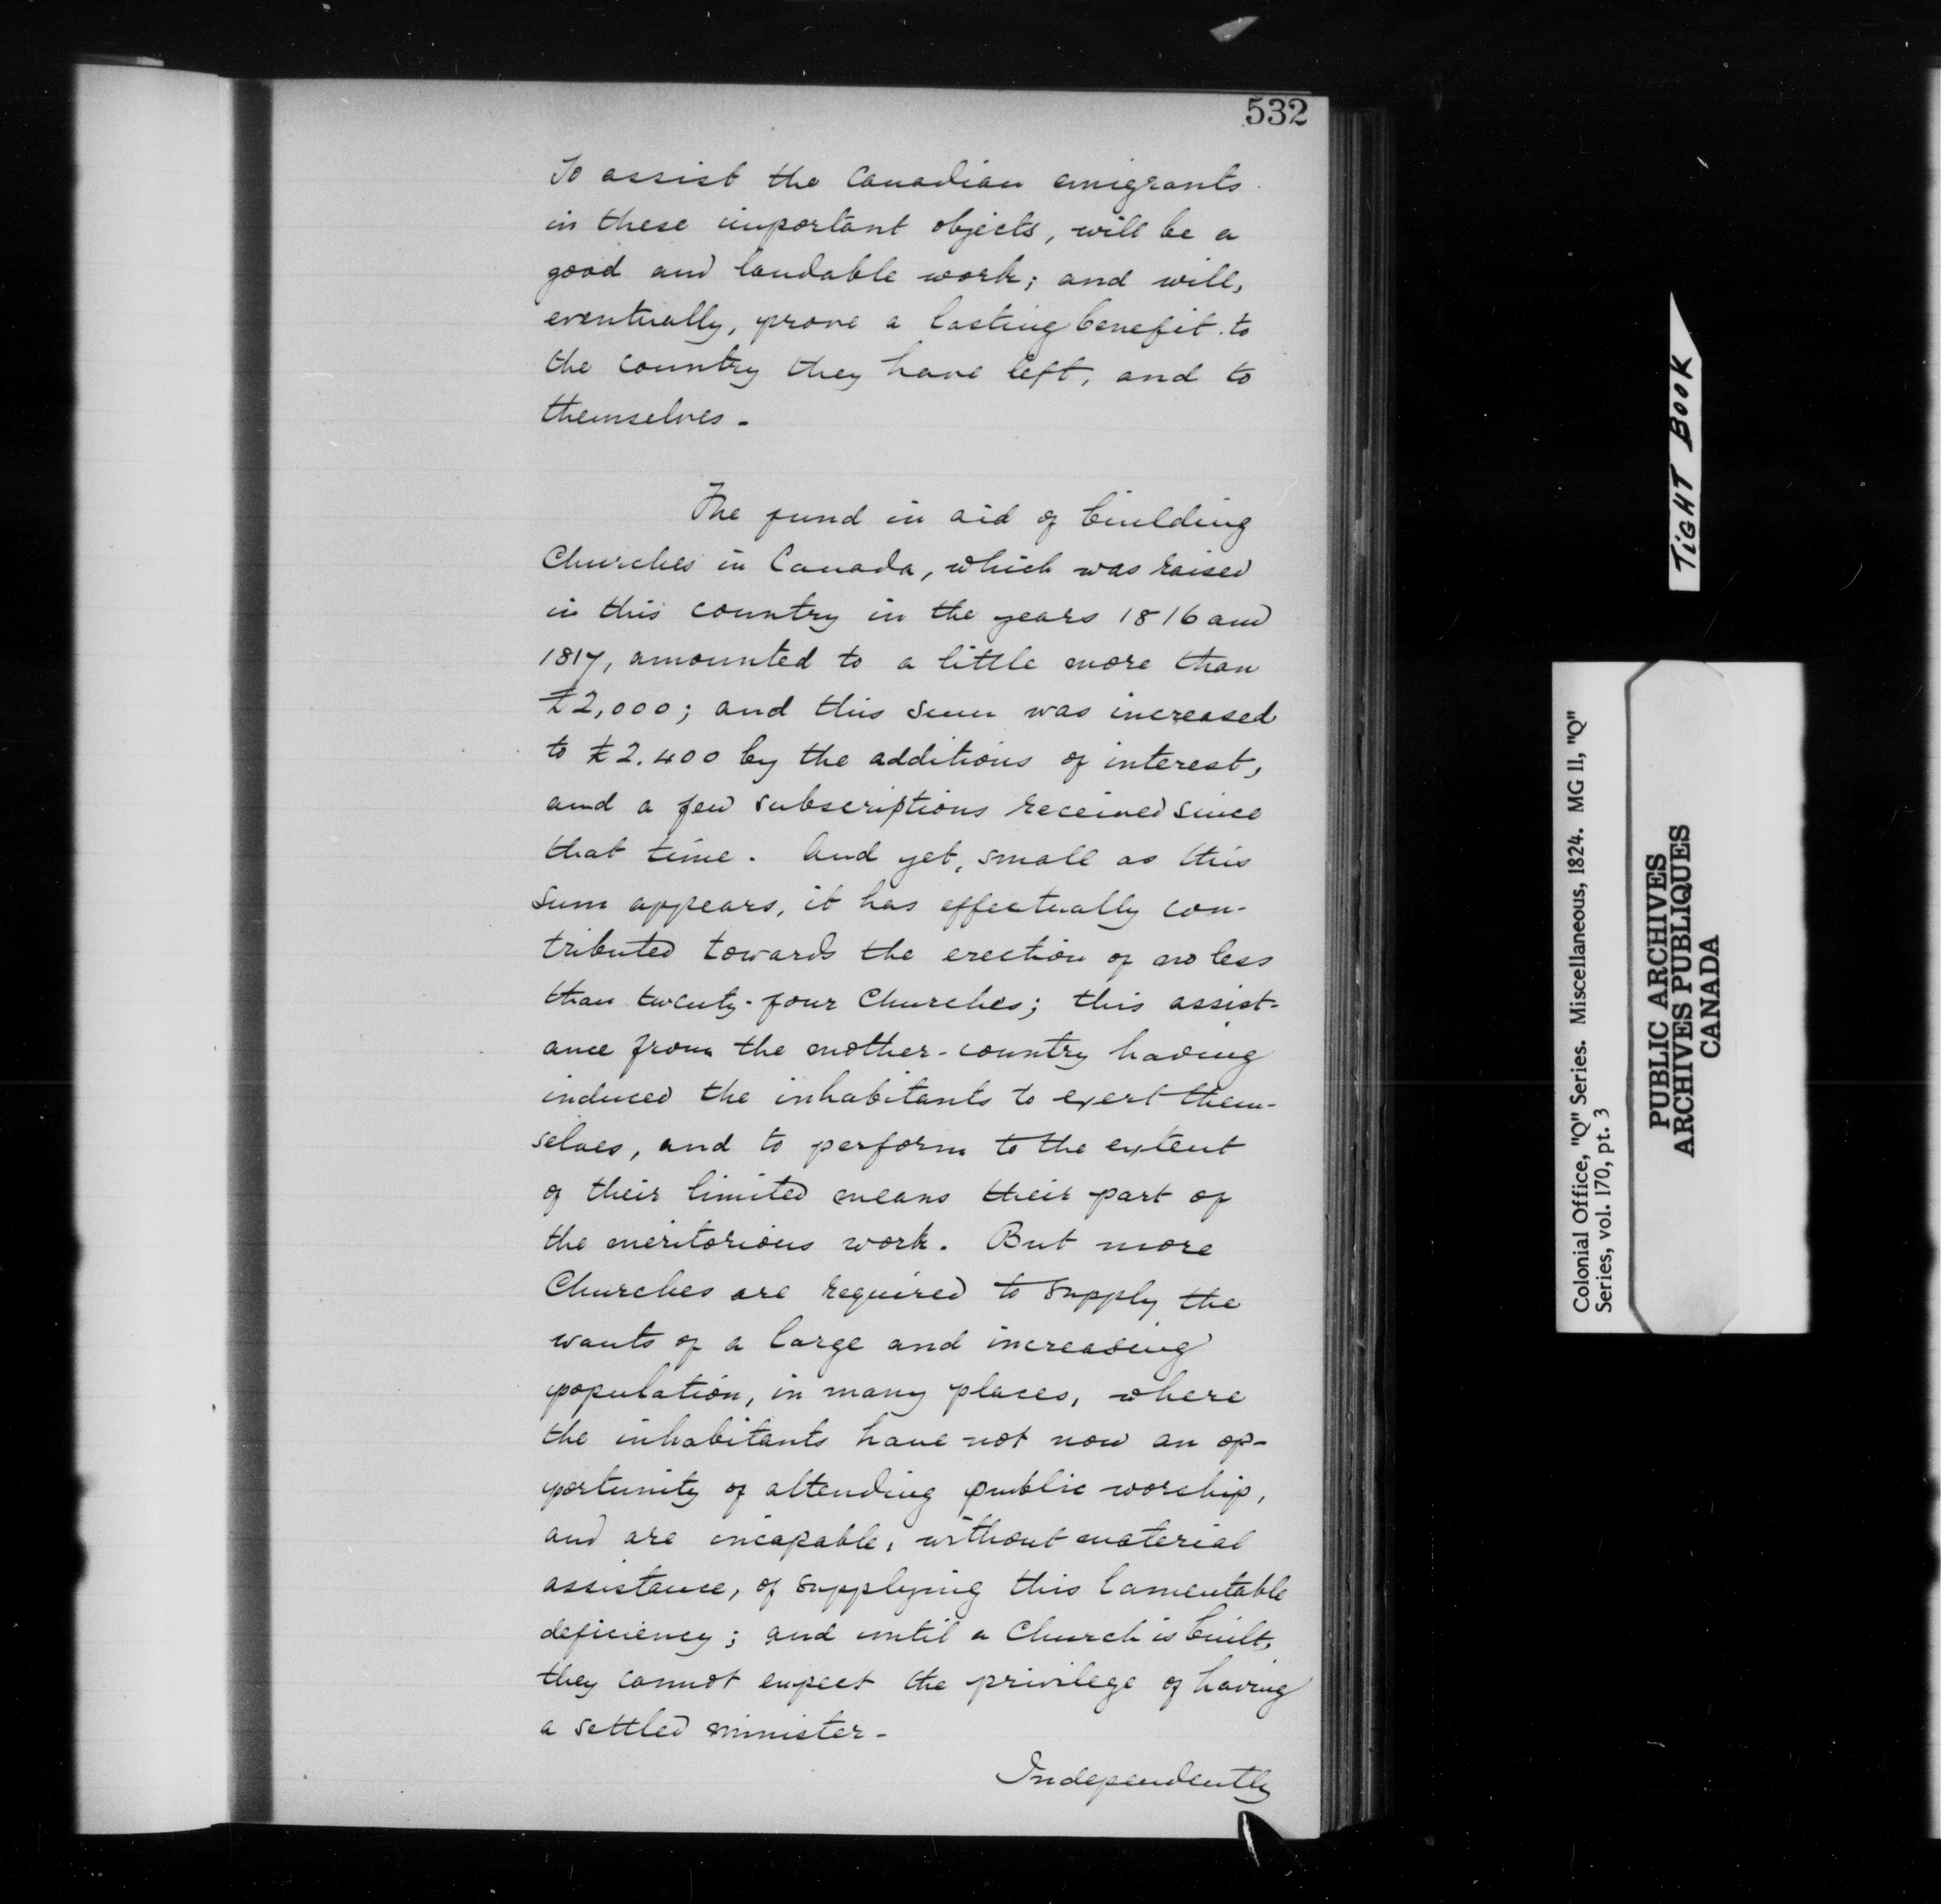 532
To assist the Canadian emigrants
in these important objects, will be a
good and laudable work; and will,
eventually, prove a lasting benefit to
the country they have left, and to
themselves -
The fund in aid of building
Churches in Canada, which was raised
in this country in the years 1816 and
1817, amounted to a little more than
£2,000; and this sum was increased
to £2.400 by the additions of interest,
and a few subscriptions received since
that time. And yet, small as this
sum appears, it has effectually con-
tributed towards the erection of no less
than twenty-four Churches; this assist-
ance from the mother-country having
induced the inhabitants to exert them-
selves, and to perform to the extent
of their limited means their part of
the meritorious work. But more
Churches are required to supply the
wants of a large and increasing
population, in many places, where
the inhabitants have not now an op-
portunity of attending public worship,
and are incapable, without material
assistance, of supplying this lamentable
deficiency; and until a Church is built,
they cannot expect the privilege of having
a settled minister -
Independently
TIGHT BOOK
Colonial Office, "Q" Series. Miscellaneous, 1824. MG 11, "Q"
Series, vol. 170, pt. 3
PUBLIC ARCHIVES
ARCHIVES PUBLIQUES
CANADA